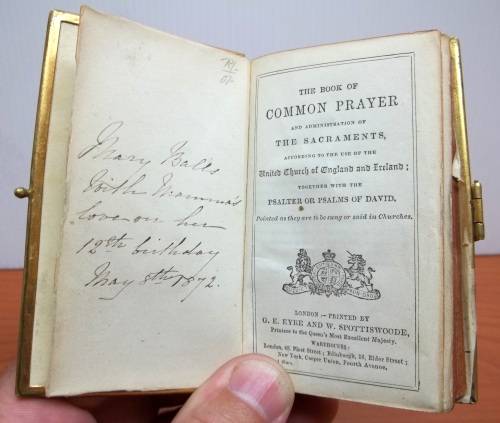 Mary Balls
With Mamma's
love on her
12th birthday
May 8th 1872.
THE BOOK OF
COMMON PRAYER
AND ADMINISTRATION OF
THE SACRAMENTS,
ACCORDING TO THE USE OF THE
United Church of England and Ireland;
TOGETHER WITH THE
PSALTER OR PSALMS OF DAVID,
Pointed as they are to be sung or said in Churches.
LONDON:—PRINTED BY
G. E. EYRE AND W. SPOTTISWOODE,
Printers to the Queen's Most Excellent Majesty.
WAREHOUSE:
London, 43, Fleet Street; Edinburgh, 16, Elder Street;
New York, Cooper Union, Fourth Avenue.